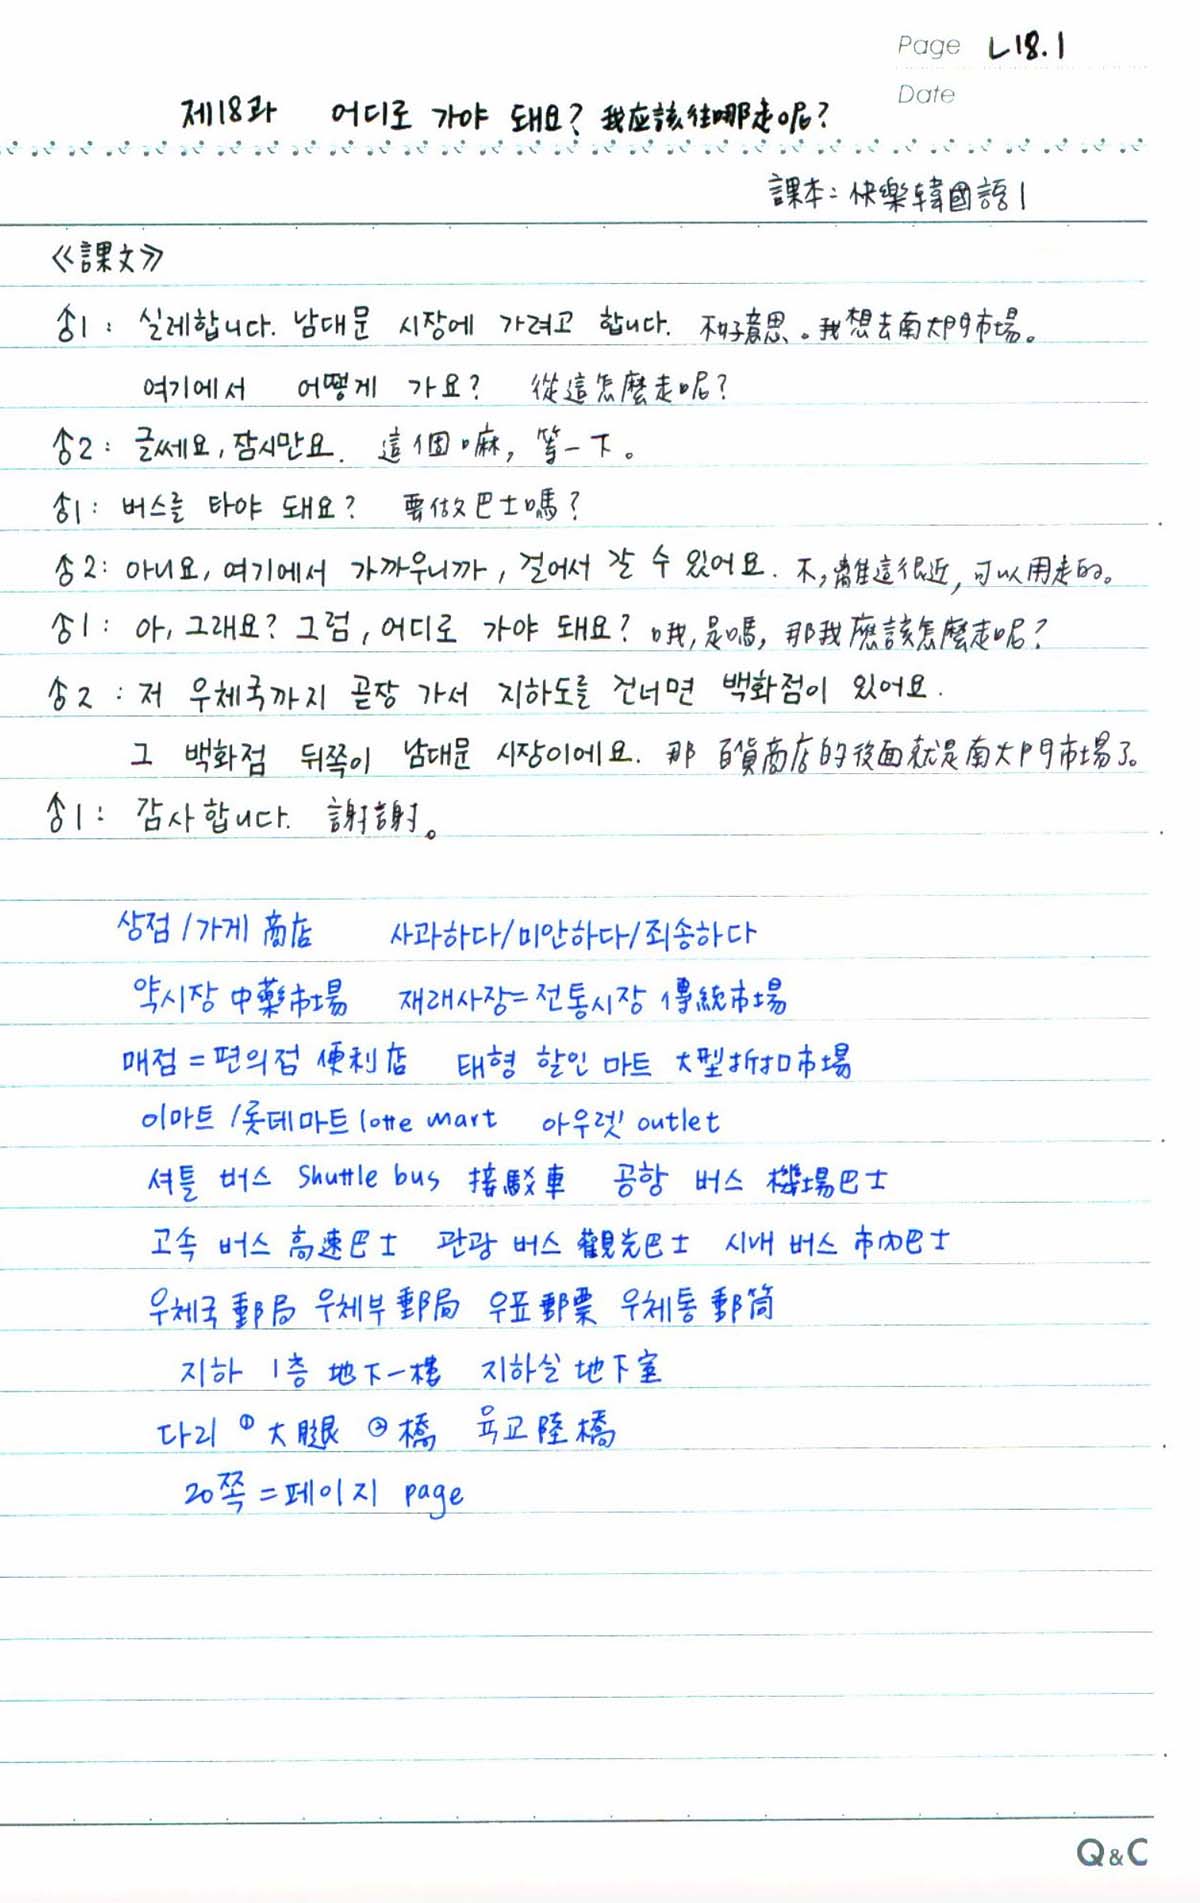 Page L18.1
Date
제18과 어디로 가야 돼요? 我应該往哪走呢?
課本: 快樂韓國語1
《課文》
승1: 실레합니다. 남대문 시장에 가려고 합니다. 不好意思。我想去南大門市場。
여기에서 어떻게 가요? 從這怎麼走呢?
승2: 글쎄요, 잠시만요. 這個嘛, 等一下。
승1: 버스를 타야 돼요? 要做巴士嗎?
승2: 아니요, 여기에서 가까우니까, 걸어서 갈 수 있어요. 不, 離這很近, 可以用走的。
승1: 아, 그래요? 그럼, 어디로 가야 돼요? 哦, 是嗎, 那我應該怎麼走呢?
승2: 저 우체국까지 곧장 가서 지하도를 건너면 백화점이 있어요.
그 백화점 뒤쪽이 남대문 시장이에요. 那 百貨商店的後面就是南大門市場了。
승1: 감사합니다. 謝謝。
상점/가게 商店 사과하다/미안하다/죄송하다
약시장 中藥市場 재래사장=전통시장 傳統市場
매점=편의점 便利店 태형 할인 마트 大型折扣市場
이마트/롯데마트 lotte mart 아우렛 outlet
셔틀 버스 Shuttle bus 接駁車 공항 버스 機場巴士
고속 버스 高速巴士 관광 버스 觀光巴士 시내 버스 市內巴士
우체국 郵局 우체부 郵局 우표 郵票 우체통 郵筒
지하 1층 地下一樓 지하실 地下室
다리 ① 大腿 ② 橋 육교 陸橋
20쪽=페이지 page
Q&C